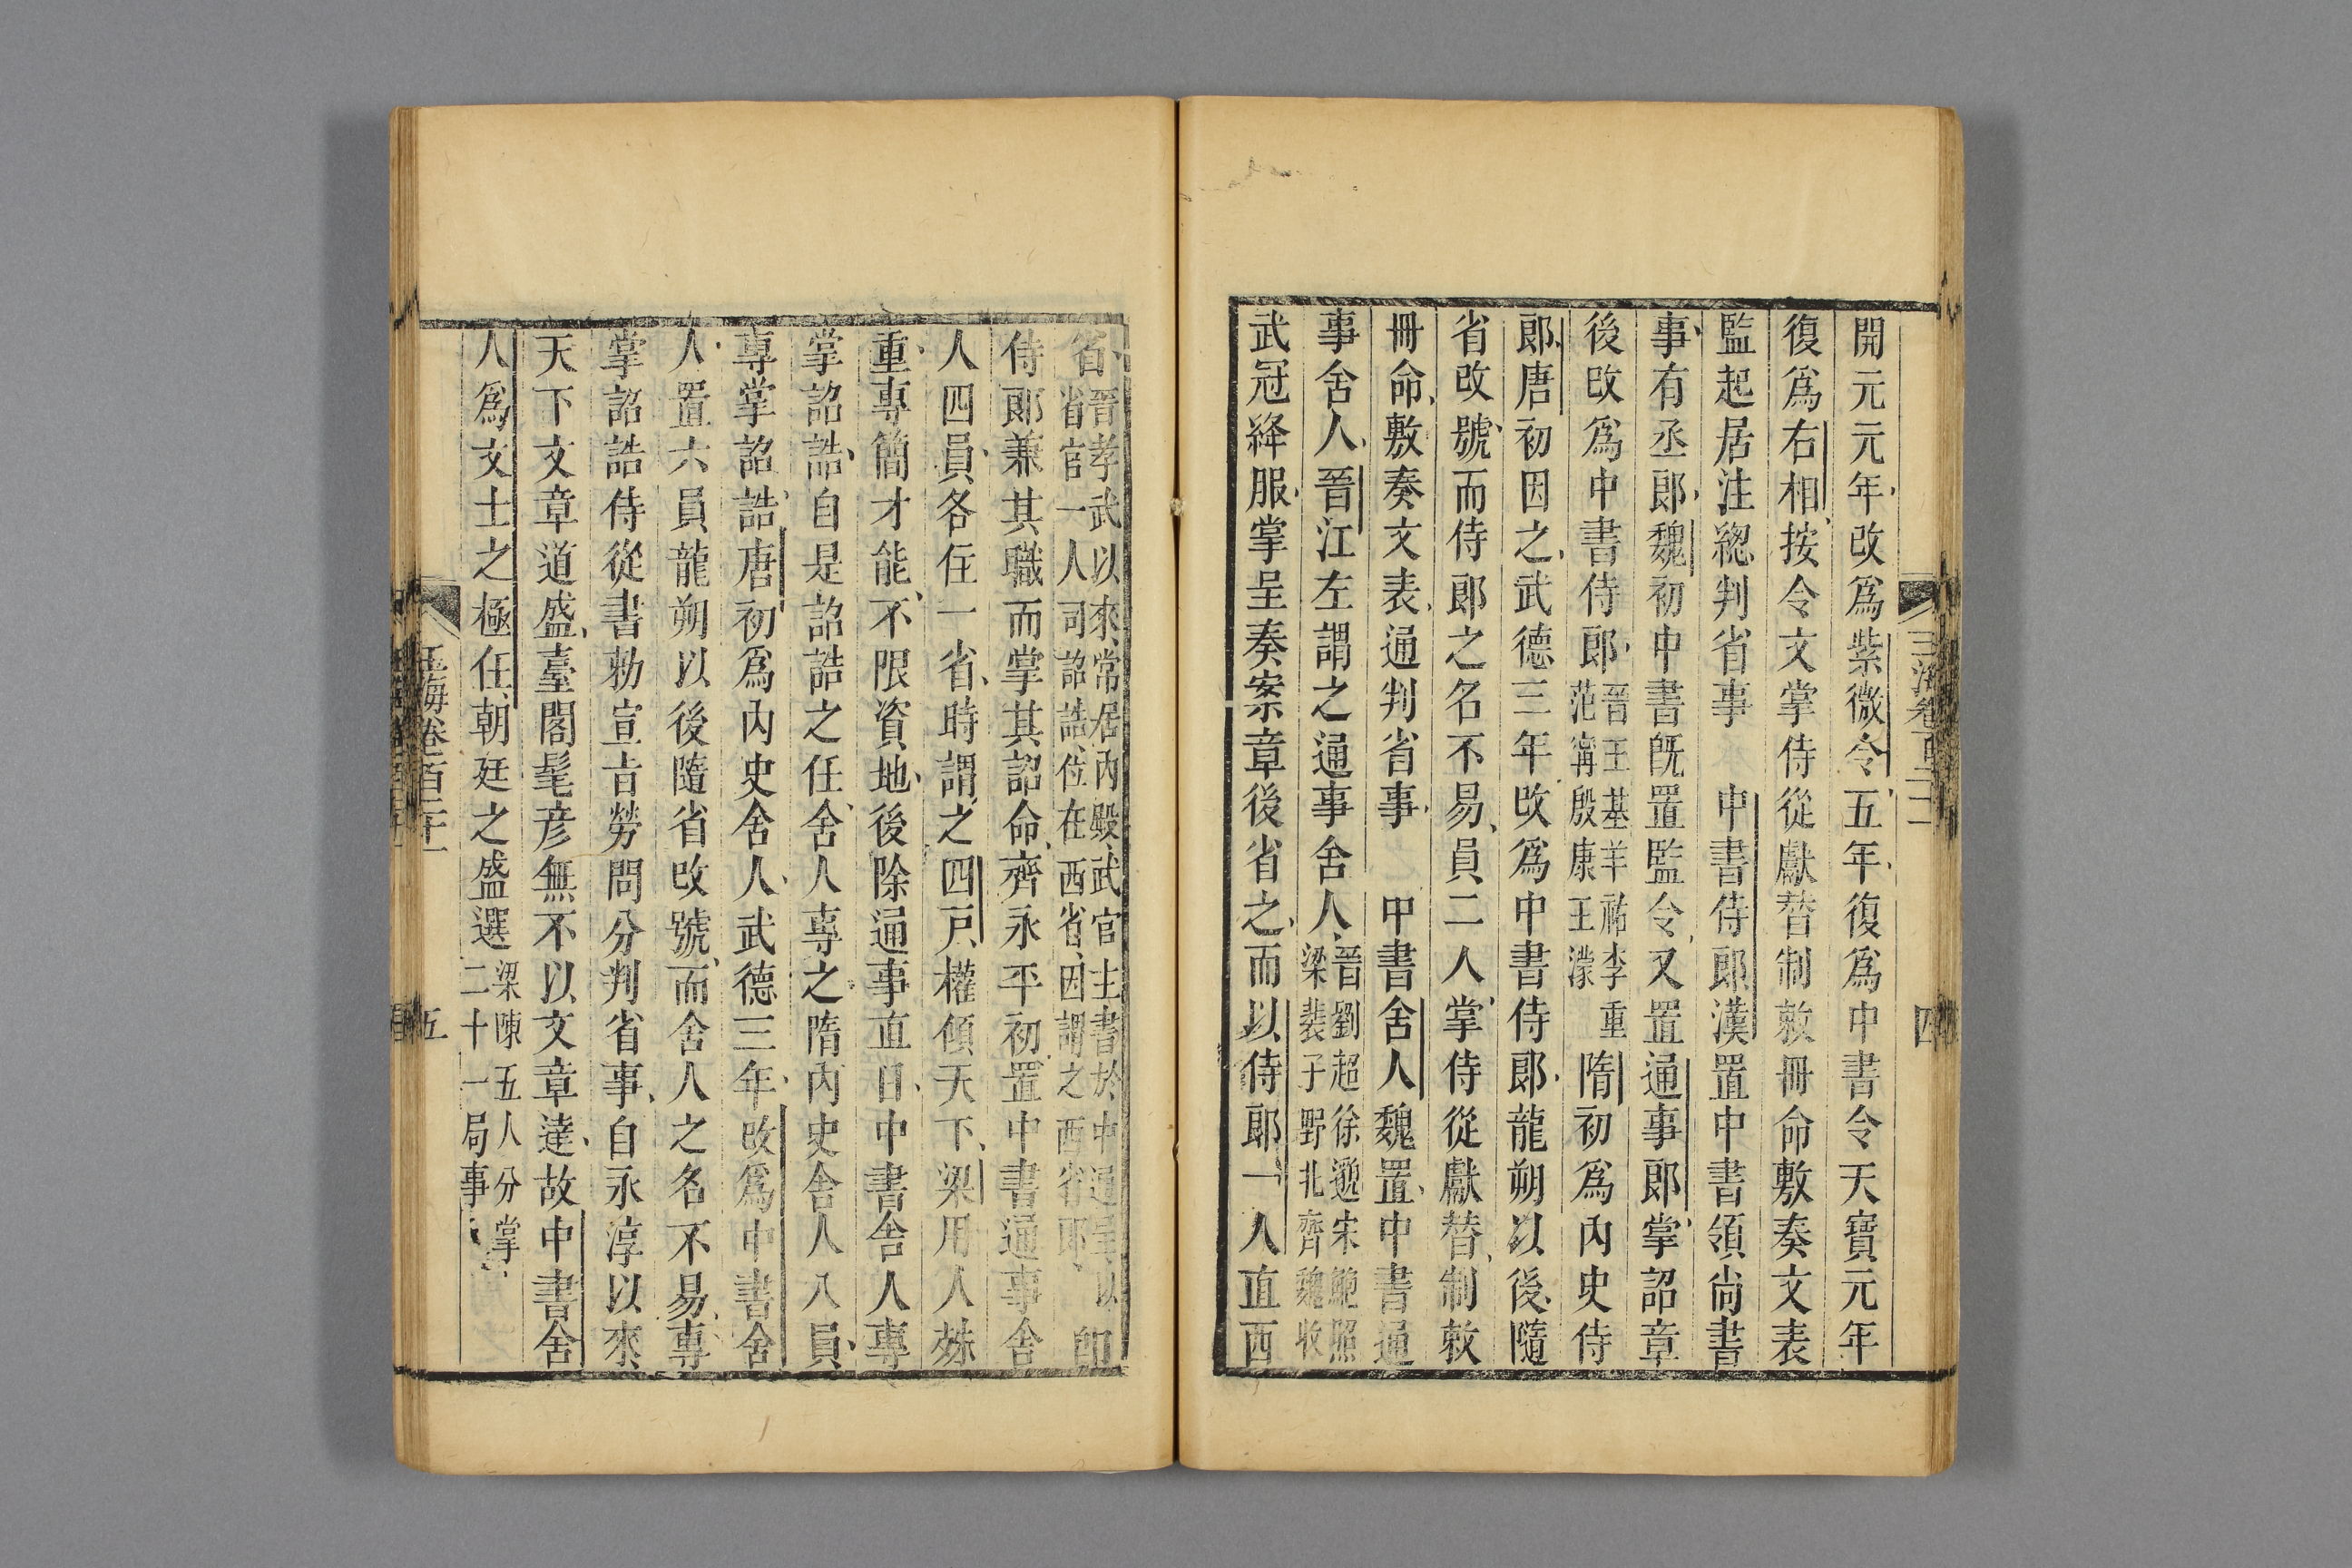 開元元年改爲紫微令五年復爲中書令天寶元年
復爲右相按令文掌侍從獻替制敕冊命敷奏文表
監起居注總判省事 中書侍郎漢置中書領尚書
事有丞郎魏初中書旣置監令又置通事郎掌詔章
後改爲中書侍郎晉王基羊祜李重范甯殷康王濛隋初爲內史侍
郎唐初因之武德三年改爲中書侍郎龍朔以後隨
省改號而侍郎之名不易員二人掌侍從獻替制敕
冊命敷奏文表通判省事 中書舍人魏置中書通
事舍人晉江左謂之通事舍人晉劉超徐邈宋鮑照梁裴子野北齊魏收
武冠絳服掌呈奏案章後省之而以侍郎一人直西
玉海卷百二十一
四
省晉孝武以來常居內殿武官主書於中通呈以省官一人司詔誥位在西省因謂之西省郎卽
侍郎兼其職而掌其詔命齊永平初置中書通事舍
人四員各住一省時謂之四戶權傾天下梁用人殊
重專簡才能不限資地後除通事直曰中書舍人專
掌詔誥自是詔誥之任舍人專之隋內史舍人八員
專掌詔誥唐初爲內史舍人武德三年改爲中書舍
人置六員龍朔以後隨省改號而舍人之名不易專
掌詔誥侍從書勑宣旨勞問分判省事自永淳以來
天下文章道盛臺閣髦彦無不以文章達故中書舍
人爲文士之極任朝廷之盛選梁陳五人分掌二十一局事
玉海卷百二十一
五